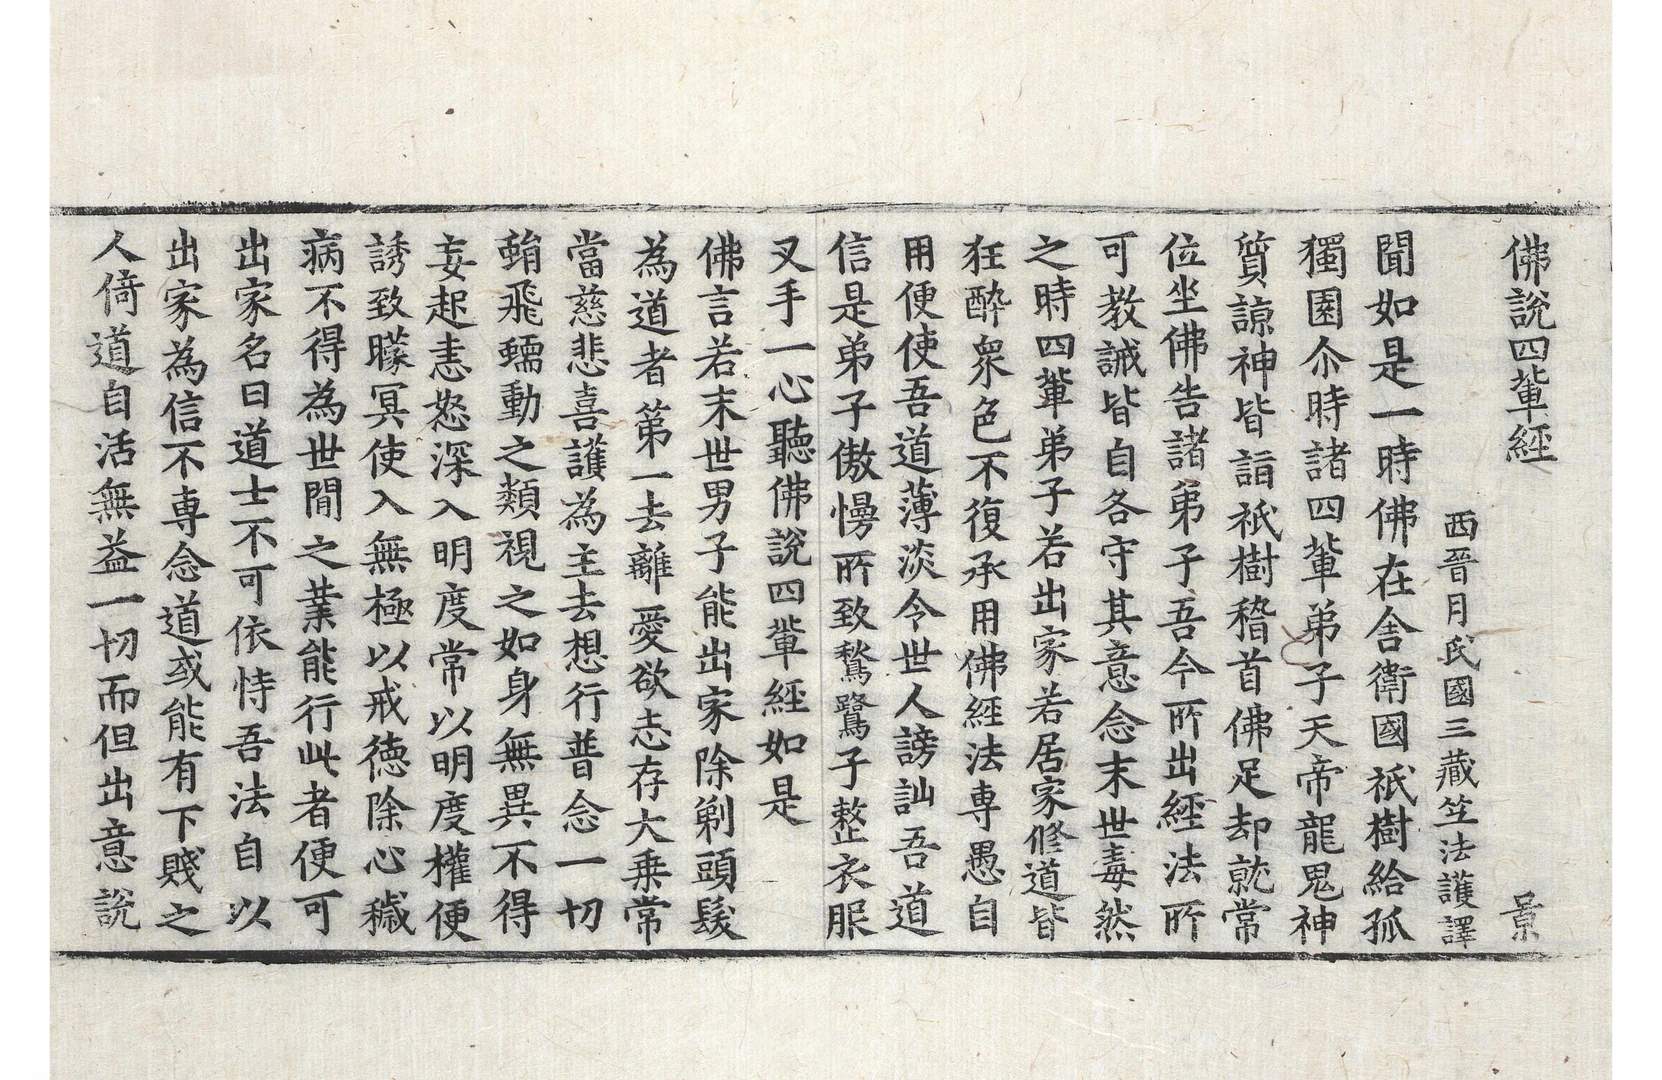 佛說四輩經 景
西晉月氏國三藏竺法護譯
聞如是一時佛在舍衛國祇樹給孤
獨園尒時諸四輩弟子天帝龍鬼神
質諒神皆詣祇樹稽首佛足却就常
位坐佛告諸弟子吾今所出經法所
可教誡皆自各守其意念末世毒然
之時四輩弟子若出家若居家修道皆
狂醉衆色不復承用佛經法專愚自
用便使吾道薄淡令世人謗訕吾道
信是弟子傲慢所致鶖鷺子整衣服
叉手一心聽佛說四輩經如是
佛言若末世男子能出家除剃頭髮
為道者第一去離愛欲志存大乗常
當慈悲喜護為主去想行普念一切
蜎飛蠕動之類視之如身無異不得
妄起恚怒深入明度常以明度權便
誘致矇冥使入無極以戒德除心穢
病不得為世間之業能行此者便可
出家名曰道士不可依恃吾法自以
出家為信不専念道或能有下賤之
人倚道自活無益一切而但出意說